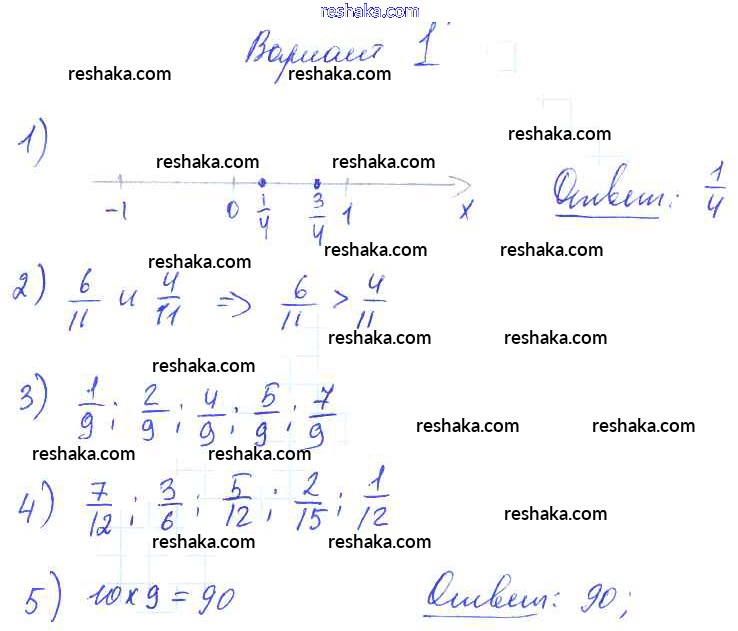 reshaka.com
Вариант 1
reshaka.com reshaka.com
1)
reshaka.com
reshaka.com reshaka.com
-1 0 1/4 3/4 1 x
Ответ: 1/4
reshaka.com reshaka.com reshaka.com
2) 6/11 и 4/11 => 6/11 > 4/11
reshaka.com reshaka.com
reshaka.com
3) 1/9; 2/9; 4/9; 5/9; 7/9
reshaka.com reshaka.com
reshaka.com reshaka.com
4) 7/12; 3/6; 5/12; 2/15; 1/12
reshaka.com
reshaka.com reshaka.com
5) 10x9=90 Ответ: 90;